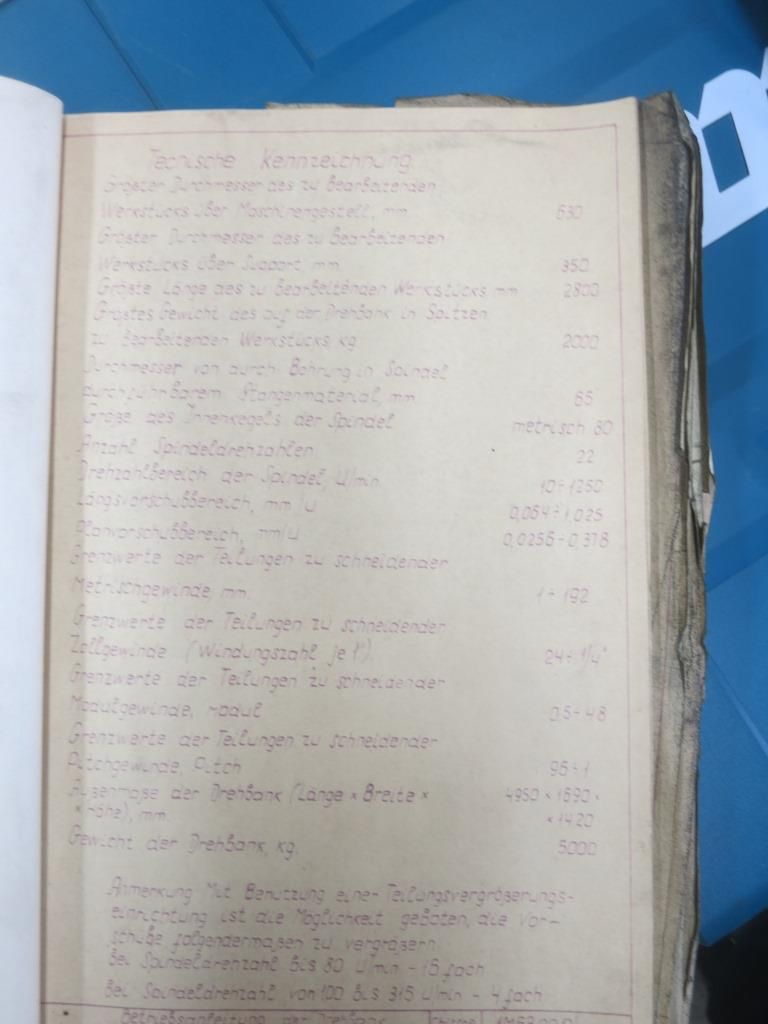 Technische Kennzeichnung
Größter Durchmesser des zu bearbeitenden
Werkstücks über Maschinengestell, mm 630
Größter Durchmesser des zu bearbeitenden
Werkstücks über Support, mm 350
Größte Länge des zu bearbeitenden Werkstücks mm 2800
Größtes Gewicht des auf der Drehbank in Spitzen
zu bearbeitenden Werkstücks, kg 2000
Durchmesser von durch Bohrung in Spindel
durchführbarem Stangenmaterial, mm 65
Größe des Innenkegels der Spindel metrisch 80
Anzahl Spindeldrehzahlen 22
Drehzahlbereich der Spindel, U/min 10÷1250
Längsvorschubbereich, mm/U 0,064÷1,025
Planvorschubbereich, mm/U 0,0256÷0,378
Grenzwerte der Teilungen zu schneidender
Metrischgewinde, mm. 1÷192
Grenzwerte der Teilungen zu schneidender
Zollgewinde (Windungszahl je 1"). 24÷1/4"
Grenzwerte der Teilungen zu schneidender
Modulgewinde, modul 0,5÷48
Grenzwerte der Teilungen zu schneidender
Pitchgewinde, Pitch 96÷1
Außenmaße der Drehbank (Länge × Breite × 4950 × 1690 ×
× Höhe), mm. × 1420
Gewicht der Drehbank, kg. 5000
Anmerkung Mit Benutzung einer Teilungsvergrößerungs-
einrichtung ist die Möglichkeit geboten, die Vor-
schübe folgendermaßen zu vergrößern:
Bei Spindeldrehzahl bis 80 U/min - 16 fach
Bei Spindeldrehzahl von 100 bis 315 U/min - 4 fach
Betriebsanleitung der Drehbank